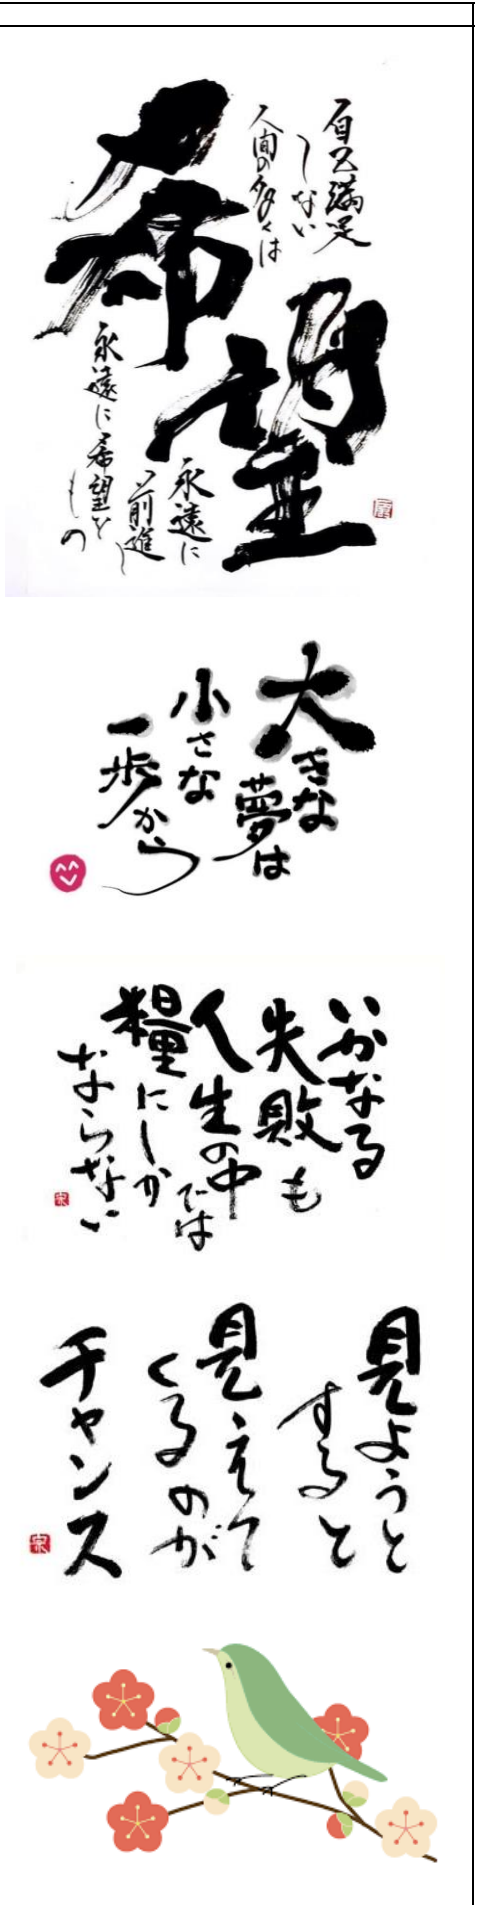 自己満足
しない
人間の多くは
希望
永遠に
前進し
永遠に希望を
もつ
大きな
夢は
小さな
一歩から
いかなる
失敗も
人生の中
では
糧にしか
ならない
見ようと
すると
見えて
くるのが
チャンス